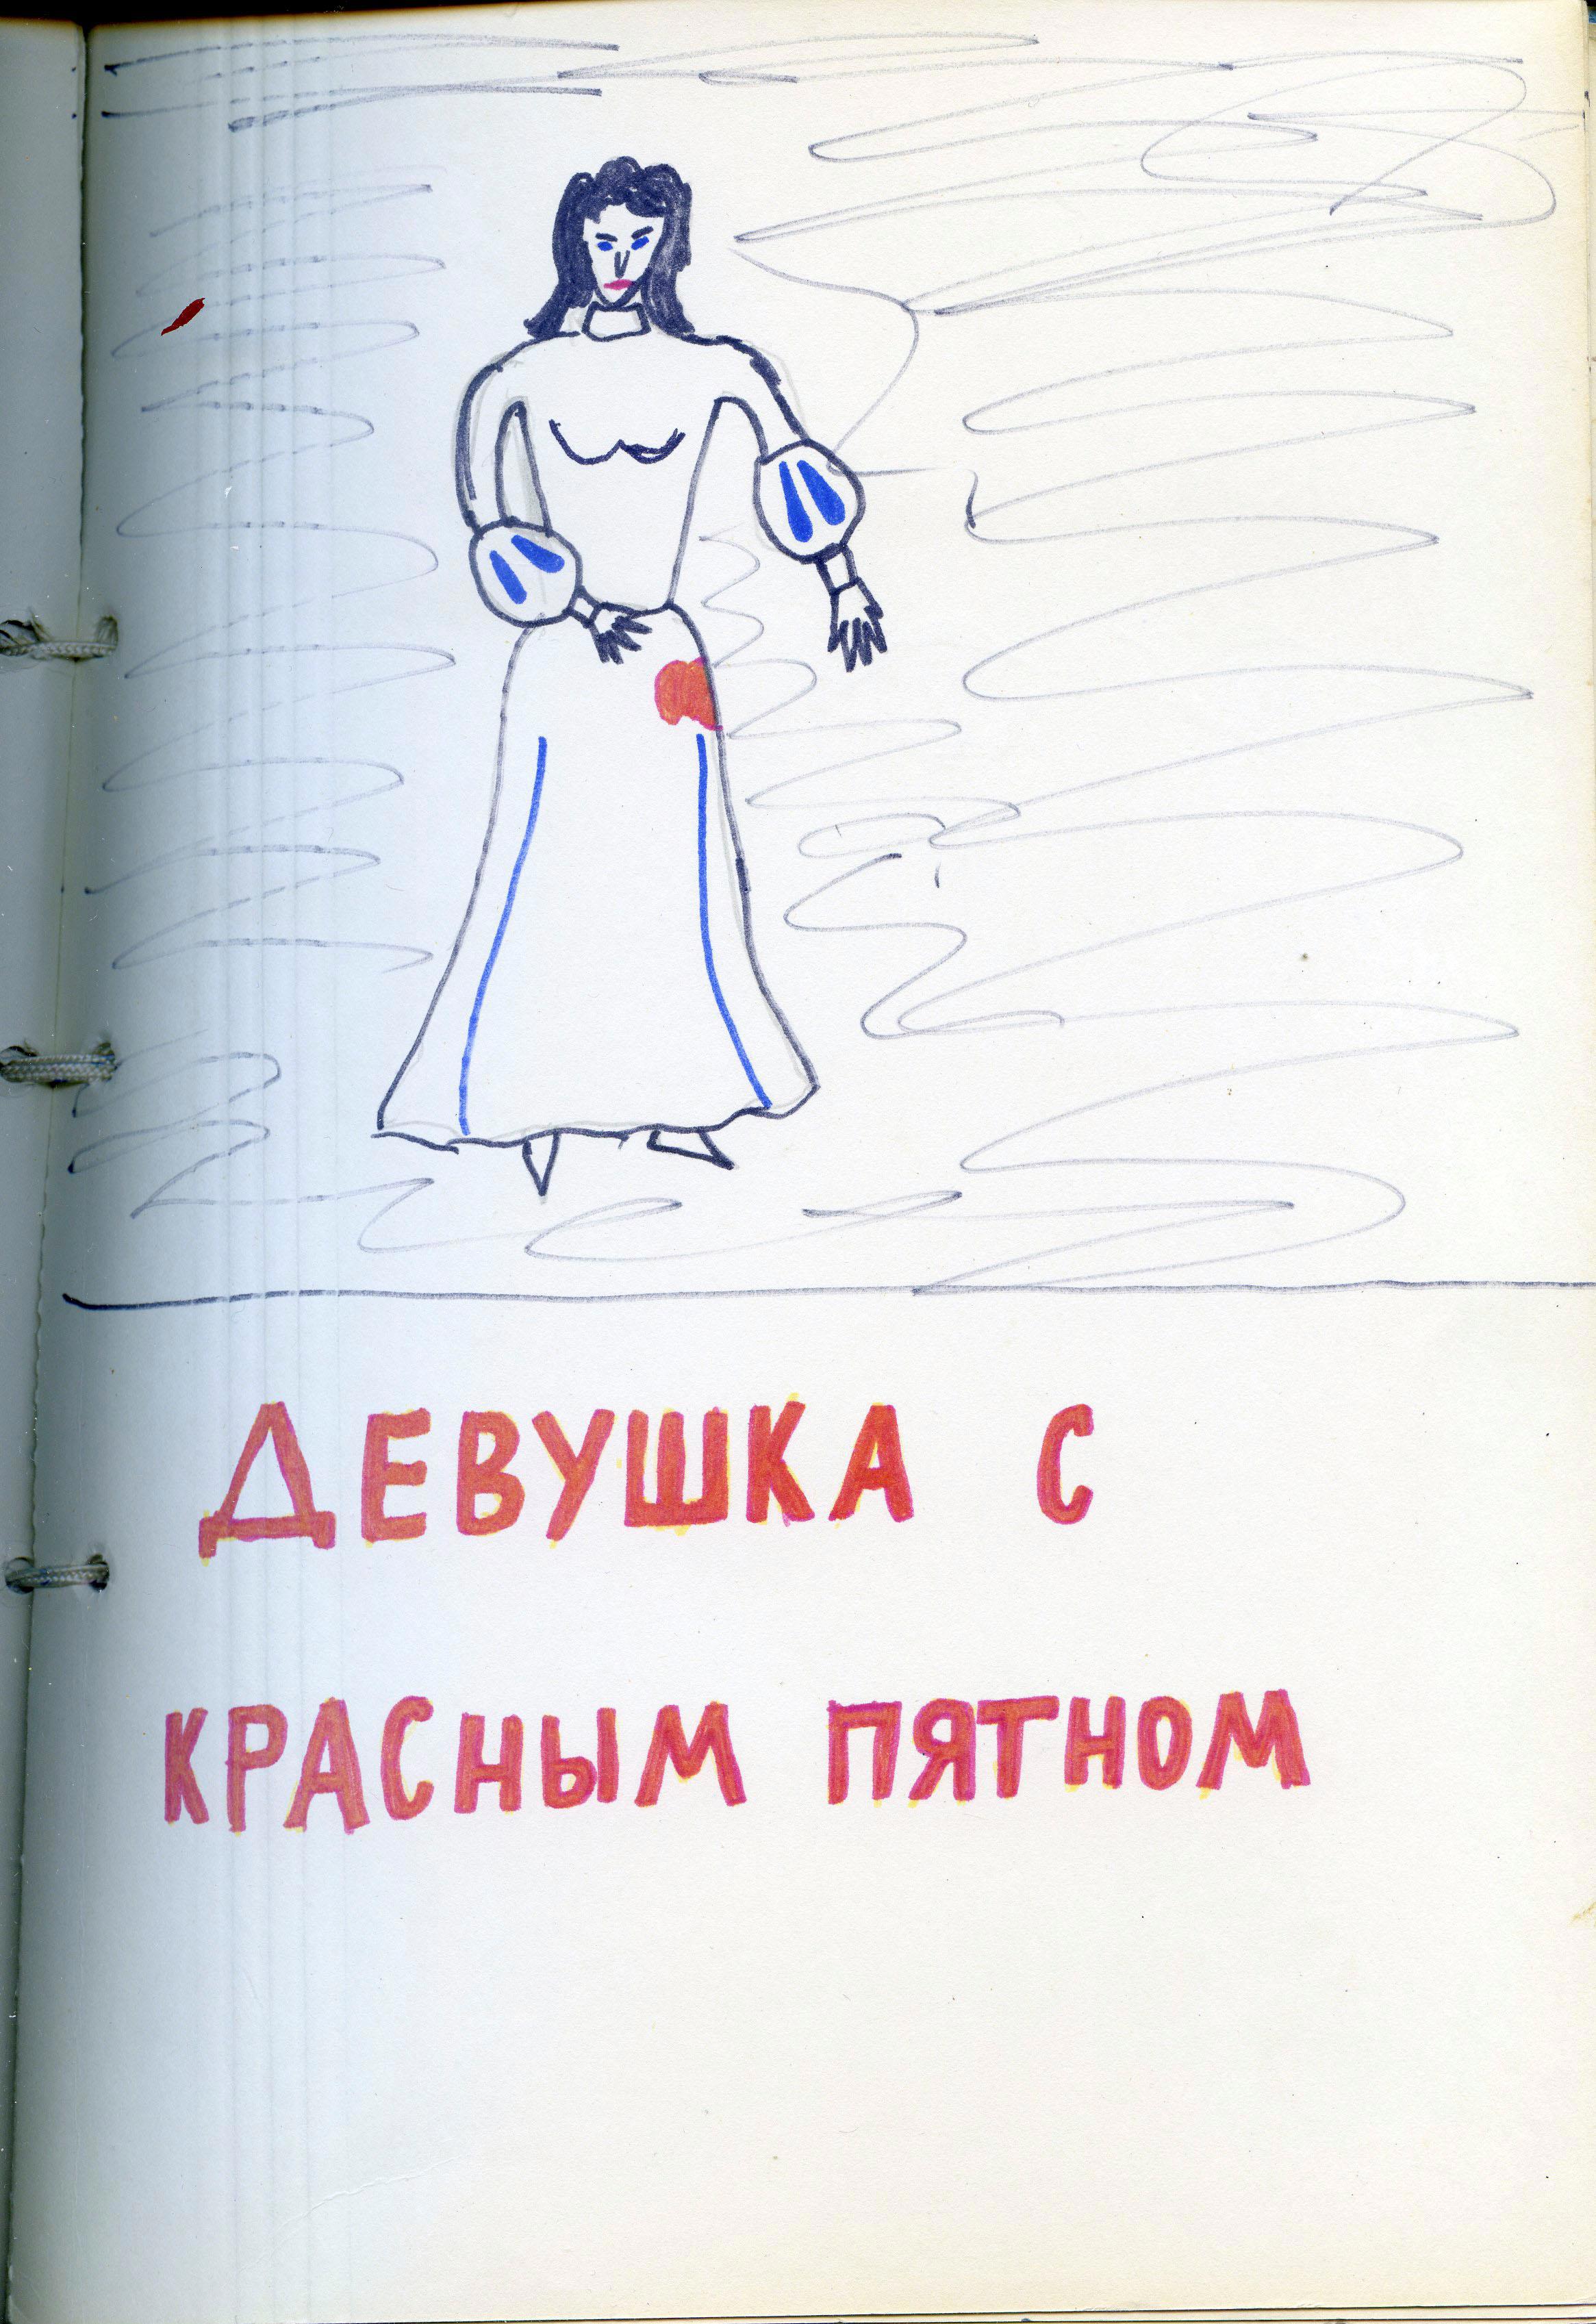 ДЕВУШКА С
КРАСНЫМ ПЯТНОМ